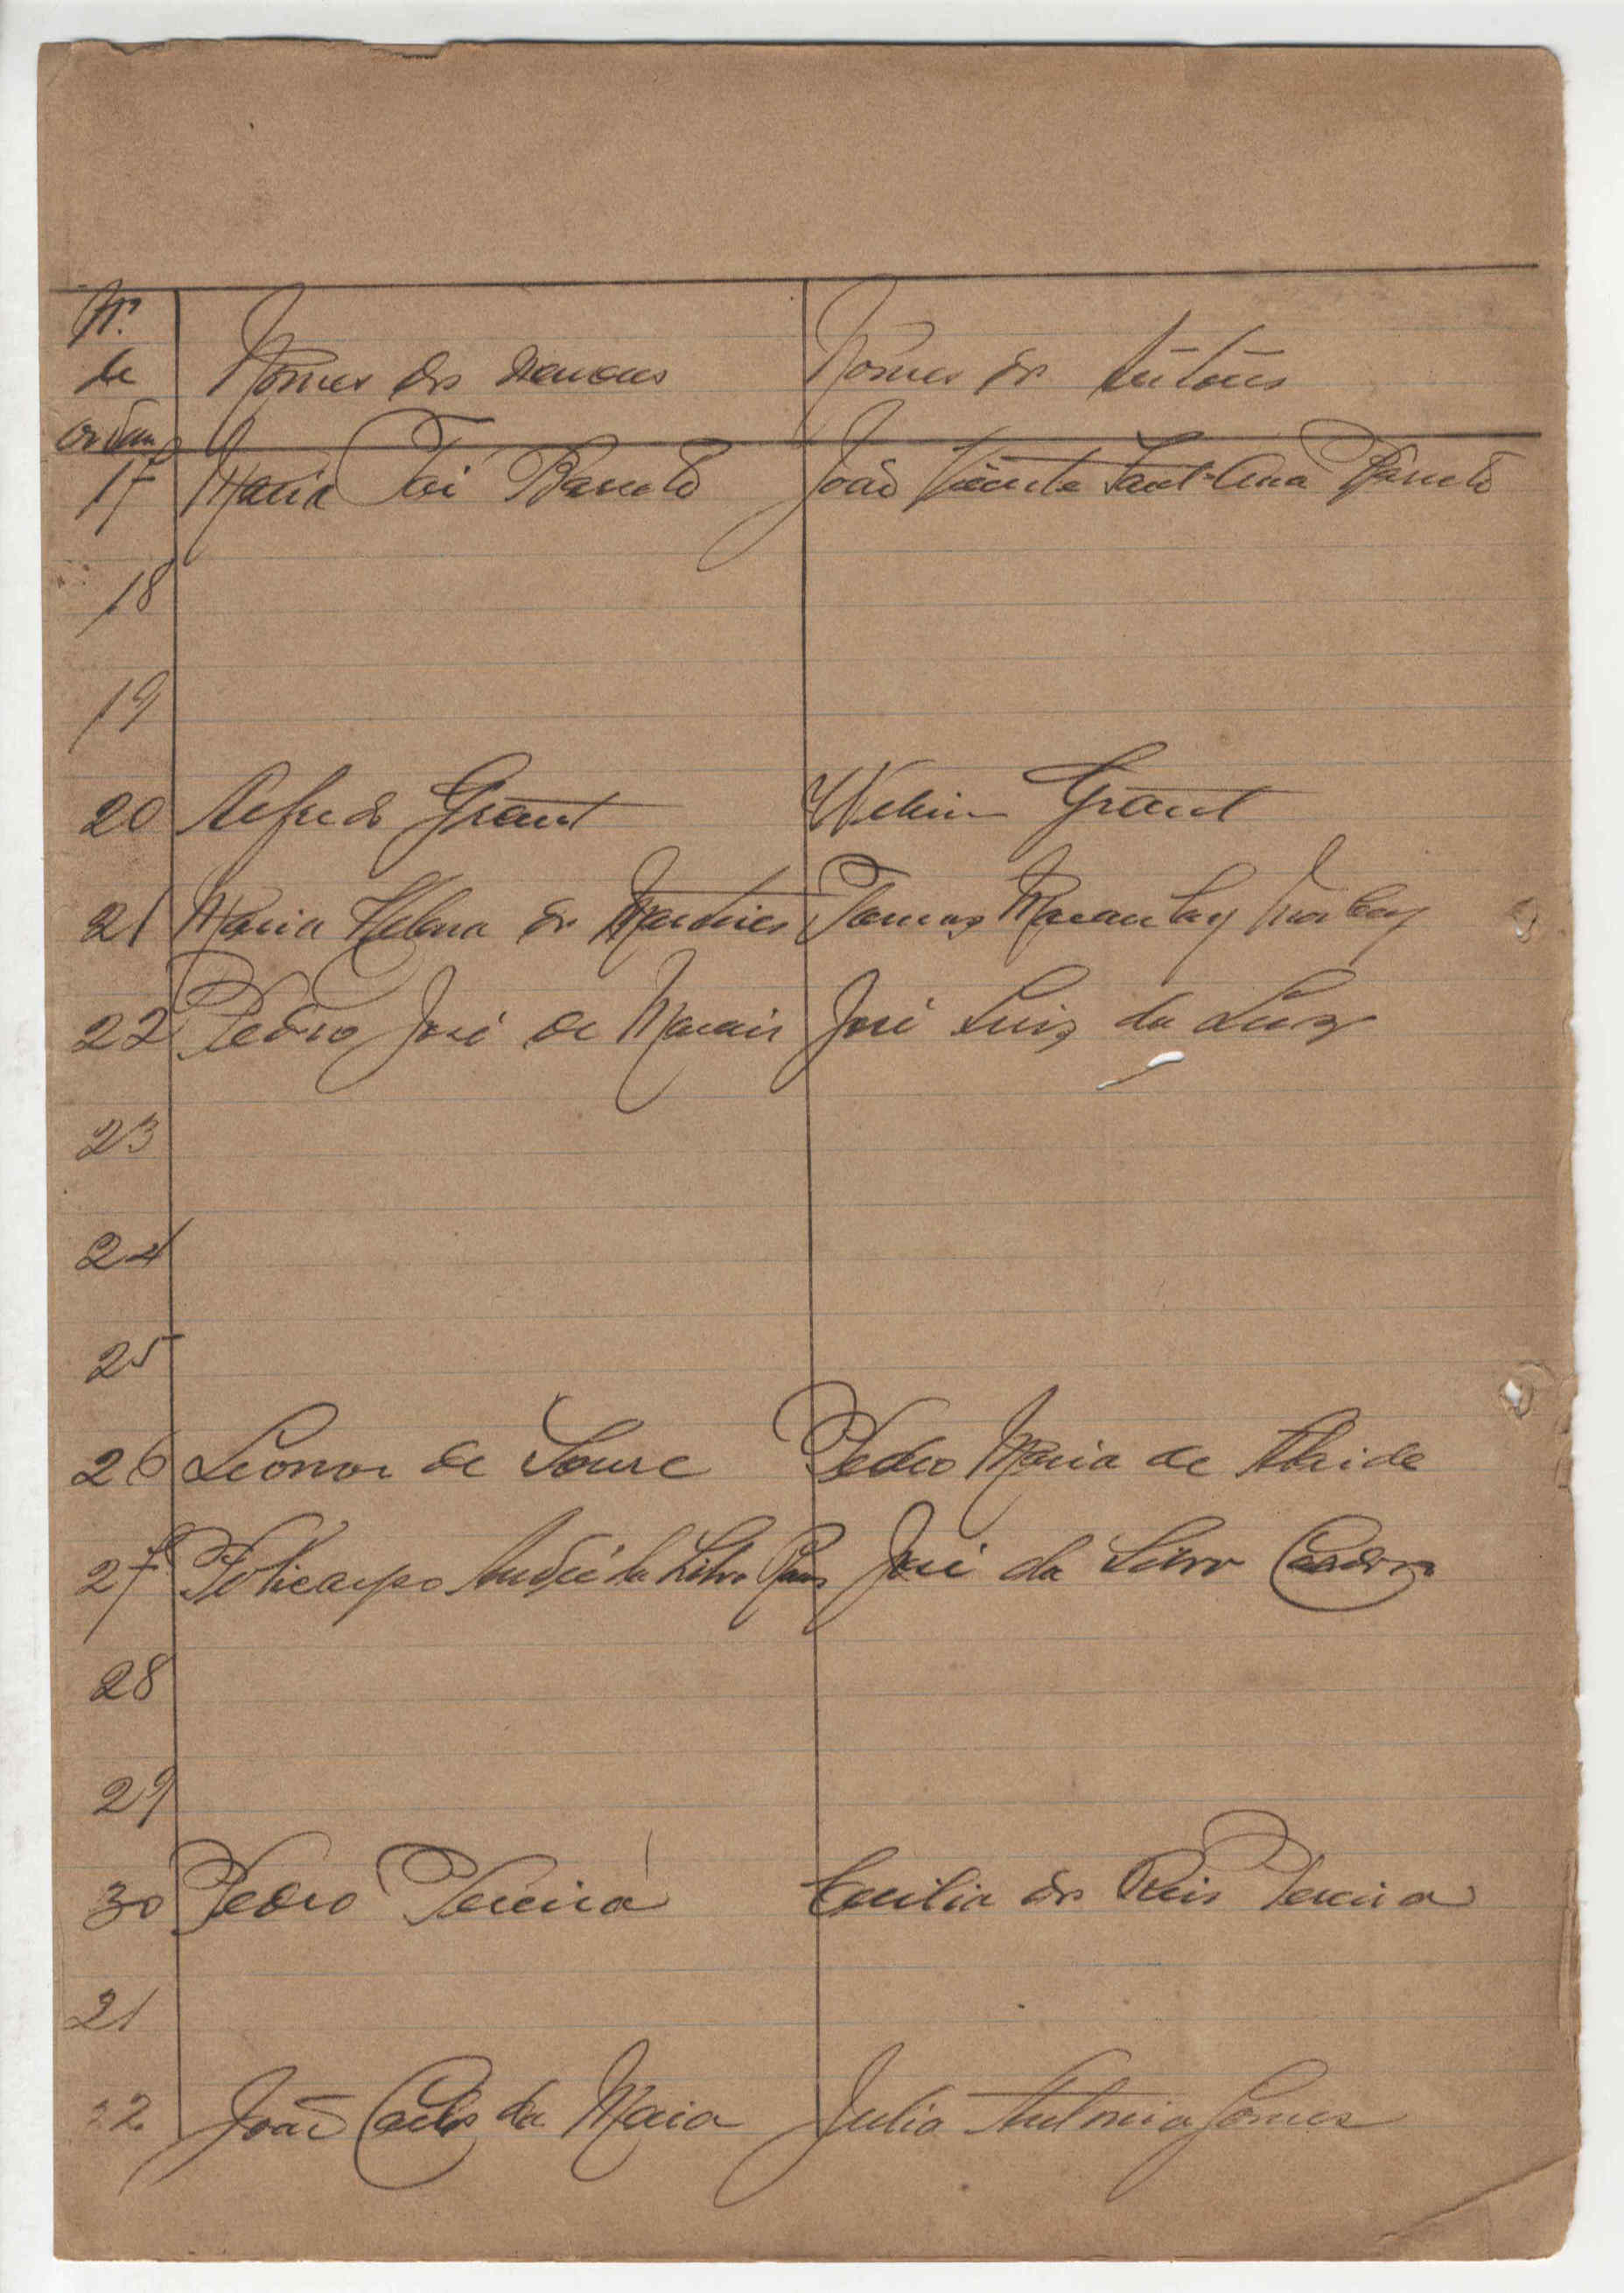 N.º de ordem
Nomes dos menores Nomes dos tutores
17 Maria José Barreto João Vicente Sant'Ana Barreto
18
19
20 Alfredo Grant Grant
21 Maria Helena dos Martires Tomaz Macaulay
22 Pedro José de Morais José Luiz da Luz
23
24
25
26 Leonor de Soure Pedro Maria de Ataide
27 Policarpo André da Silva José da Silva Cardoso
28
29
30 Pedro Pereira Cecilia dos Reis Pereira
21
32 João Carlos da Maia Julia Antonia Gomes